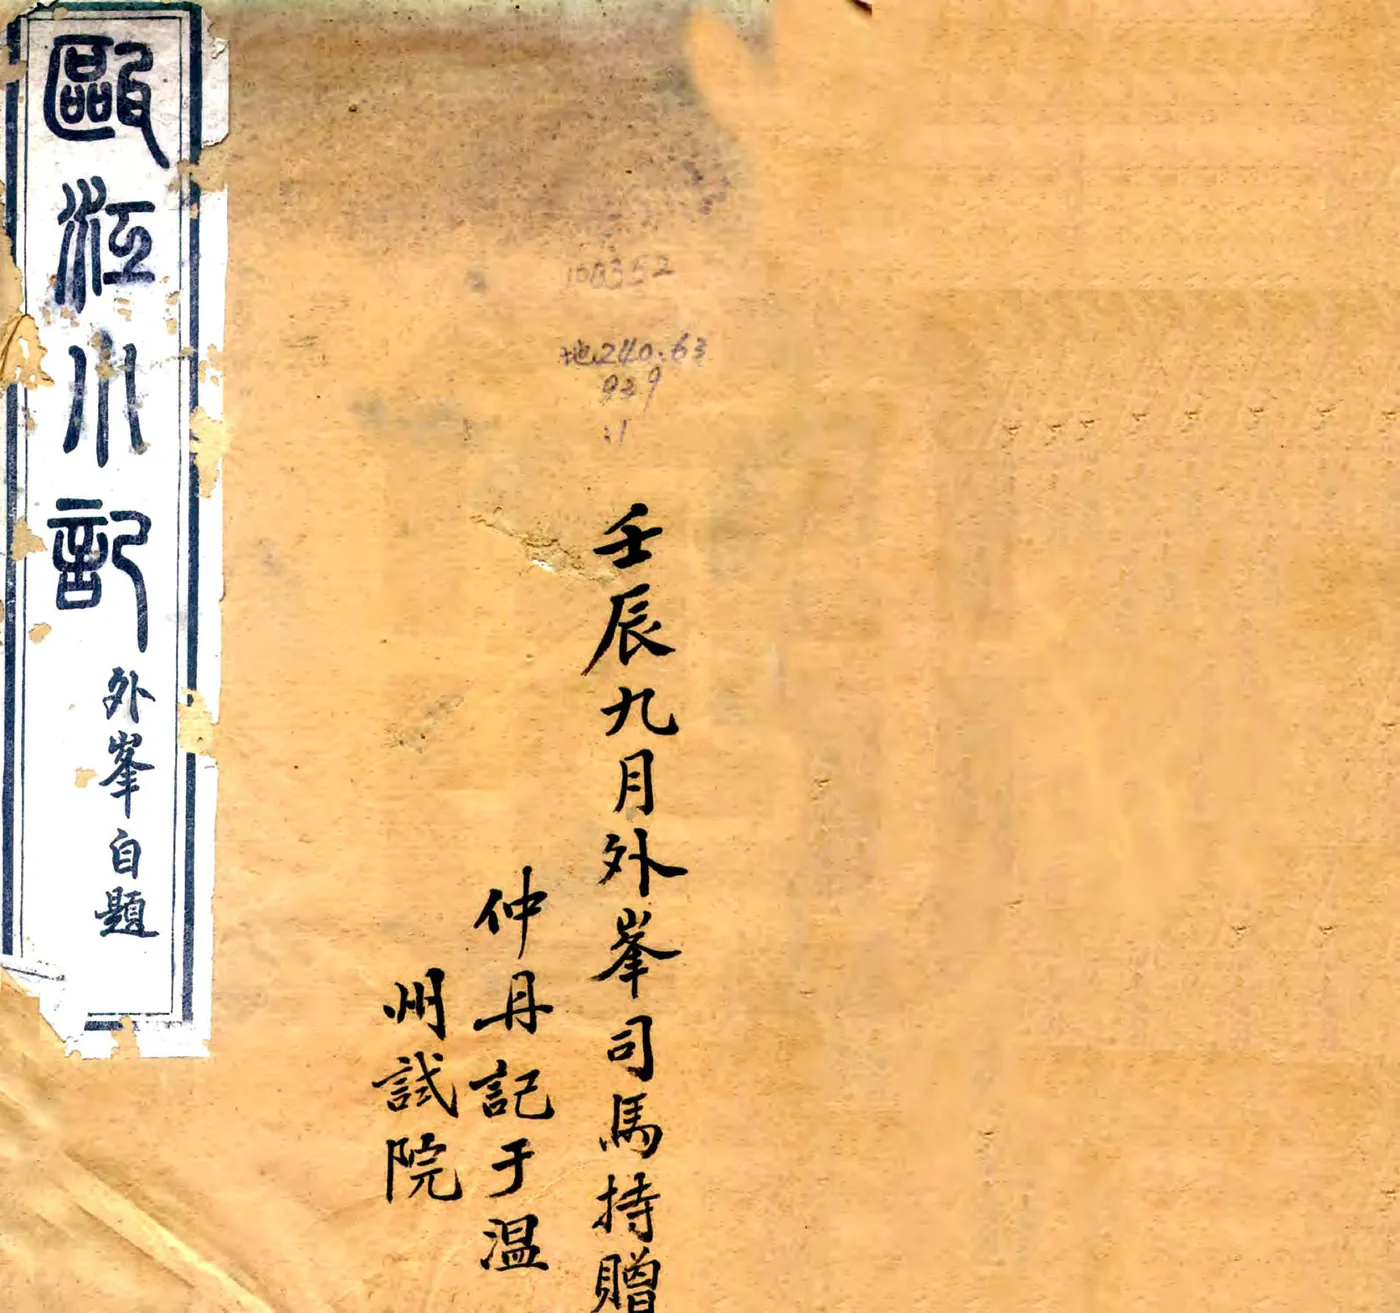 甌江小記
外峯自題
108352
地240.63
929
:1
壬辰九月外峯司馬持贈
仲丹記于溫
州試院